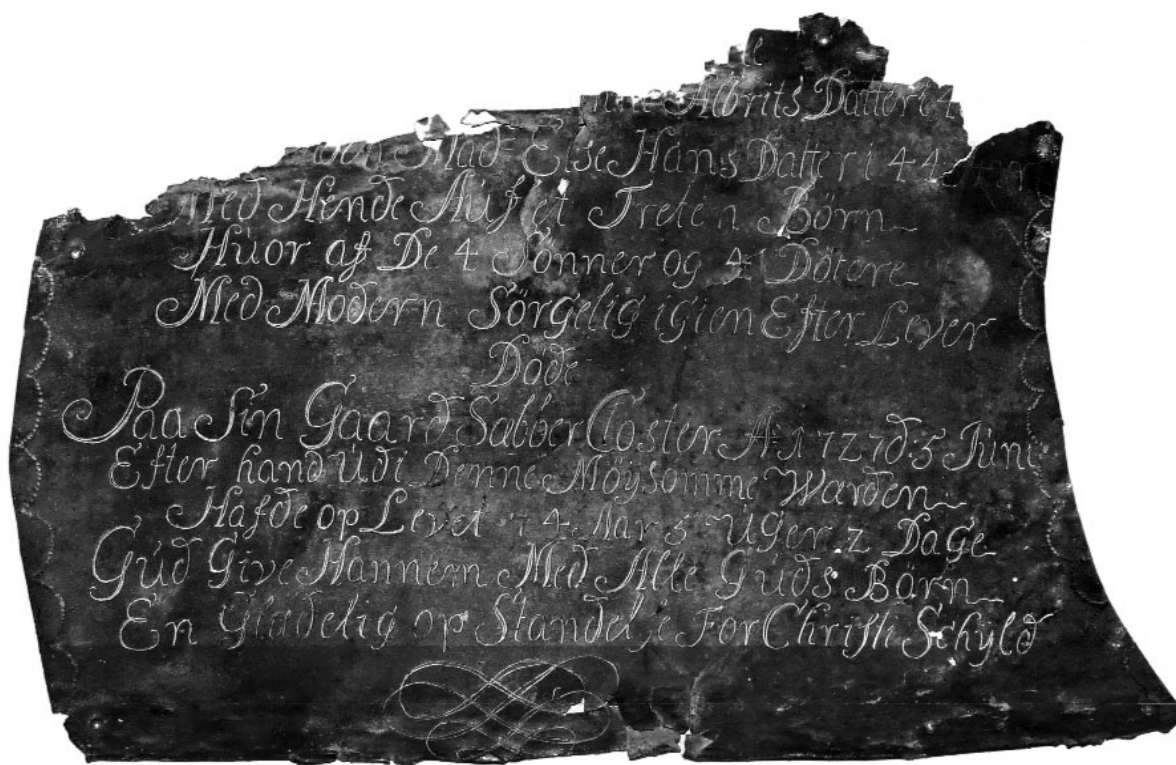 Albrits Datter i 4
Mad= Else Hans Datter i 44
Med Hende Auflet Treten Börn
Huor af De 4 Sönner og 4 Dötere
Med Modern Sörgelig igien Efter Lever
Døde
Paa Sin Gaard Sabber Closter A: 1727 d. 5 Juni
Efter hand Udi Denne Möysomme Warden
Hafde op Levet 74 Aar 5 Uger 2 Dage
Gud Give Hannem Med Alle Guds Börn
En Glædelig op Standelse For Christi Schyld